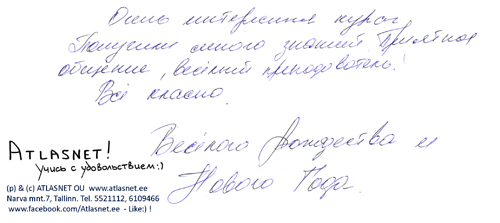 Очень интересный курс.
Получили много знаний. Приятное
общение, весёлый преподователь!
Всё класно.
Весёлого Рождества и
Нового Года.
ATLASNET!
Учись с удовольствием:)
(p) & (c) ATLASNET OU www.atlasnet.ee
Narva mnt.7, Tallinn. Tel. 5521112, 6109466
www.facebook.com/Atlasnet.ee - Like:) !